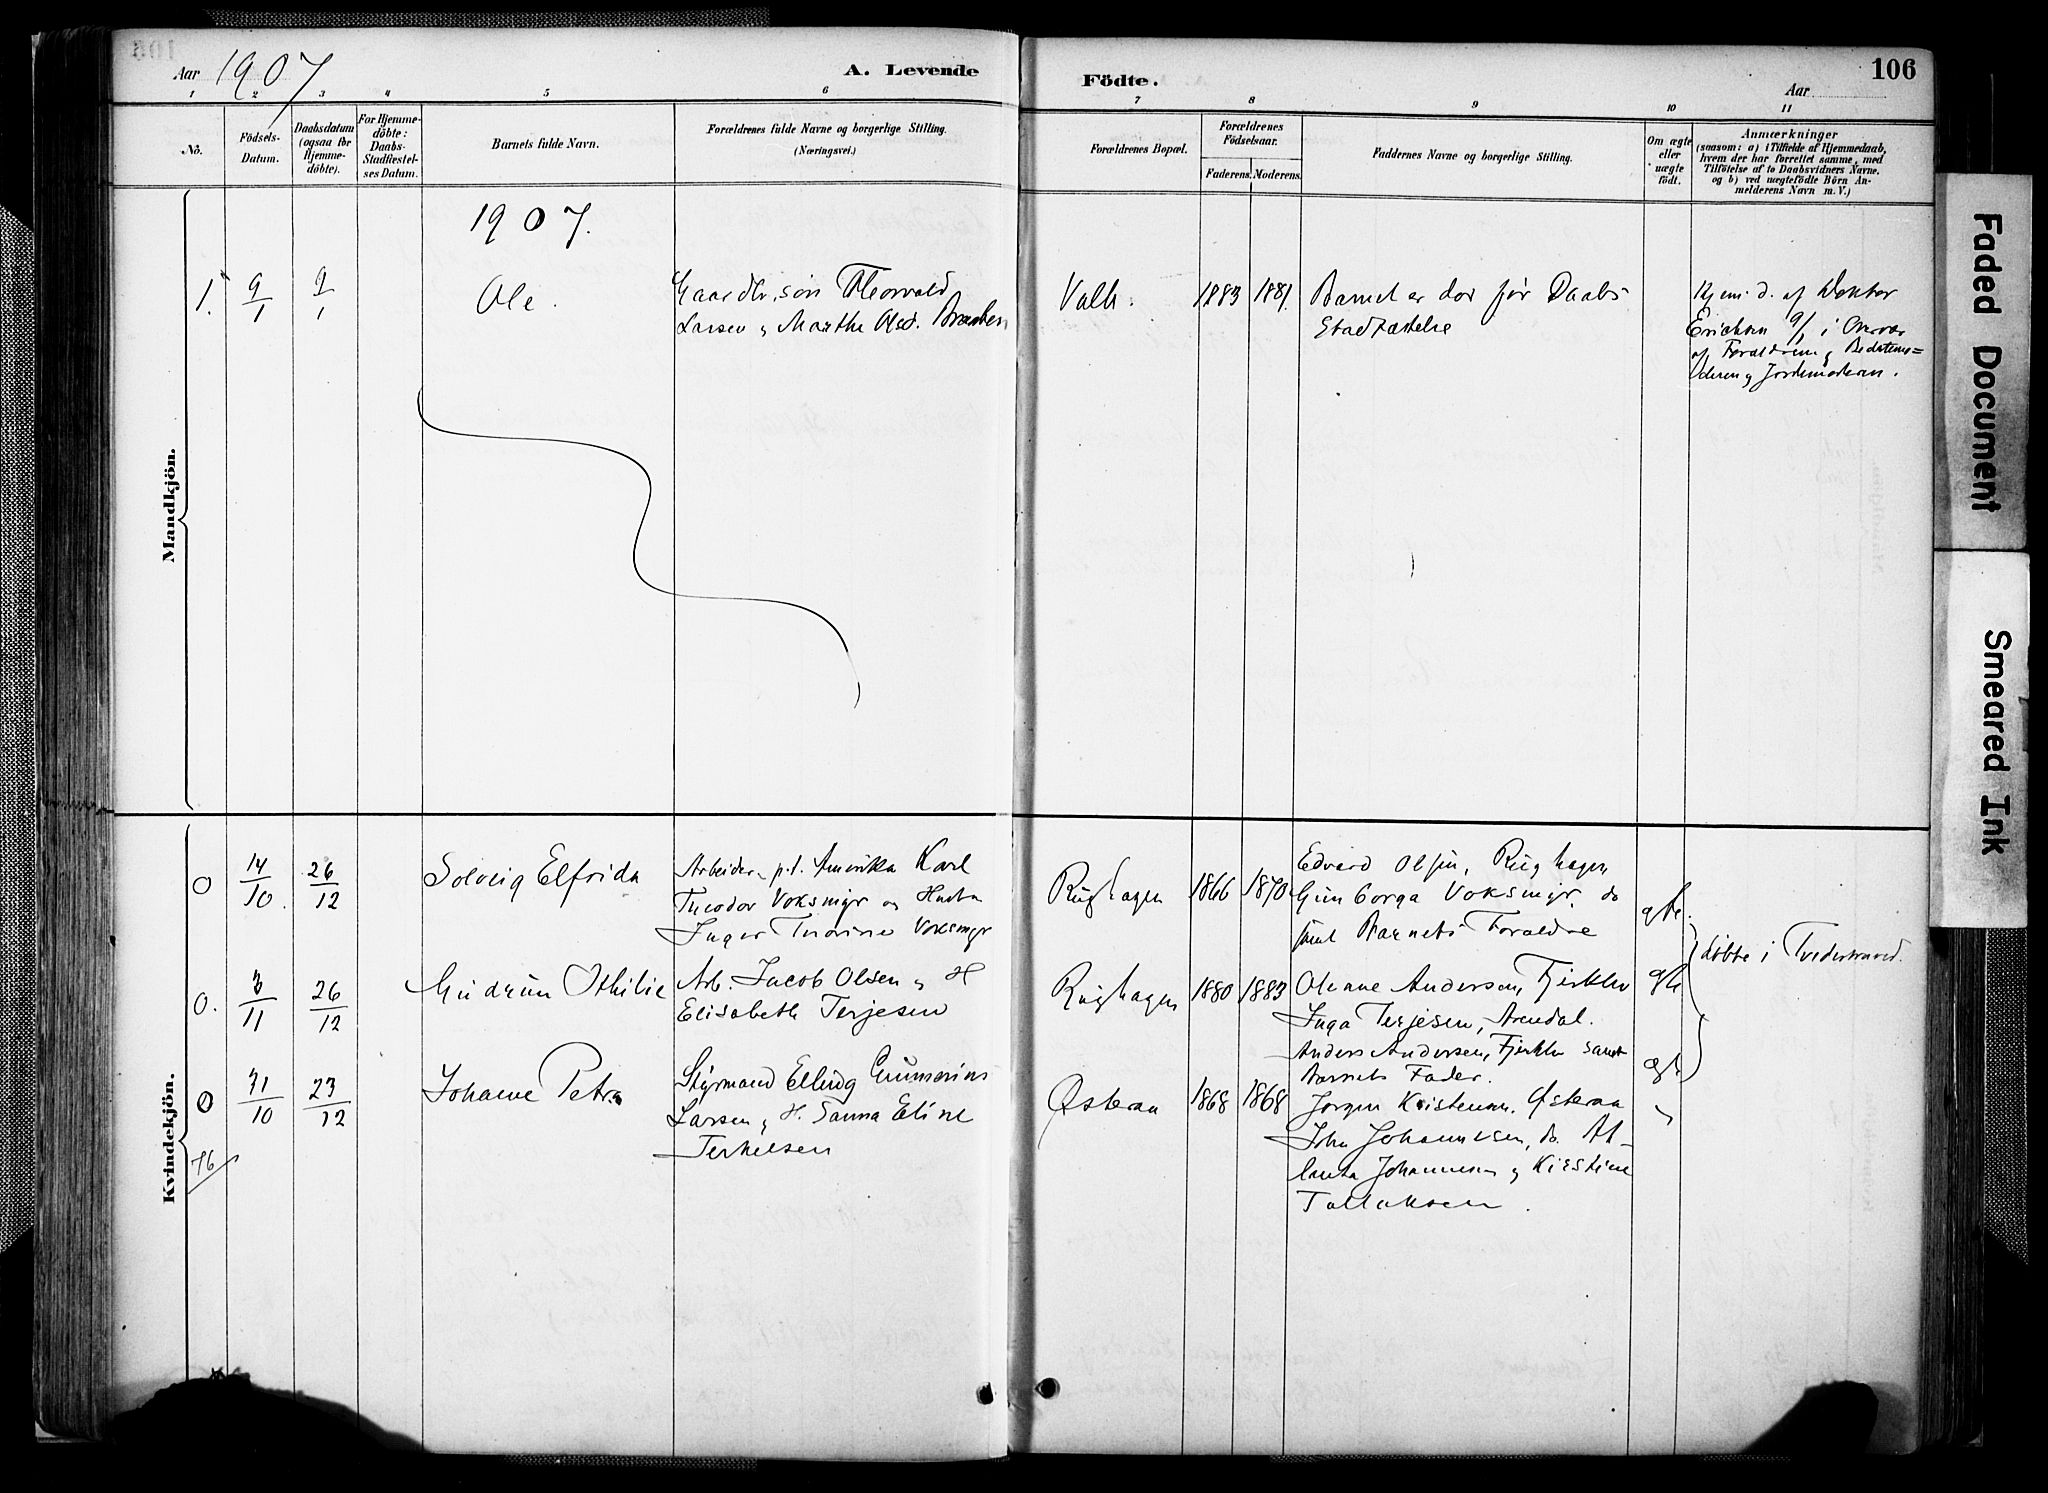 Aar 1907
A. Levende
Födte.
Aar
106
1 2 3 4 5 6 7 8 9 10 11
No.
Födsels-
Datum.
Daabsdatum
(ogsaa for
Hjemme-
döbte).
For Hjemme-
döbte:
Daabs-
Stadfæstel-
ses Datum.
Barnets fulde Navn.
Forældrenes fulde Navne og borgerlige Stilling.
(Næringsvei.)
Forældrenes Bopæl.
Forældrenes
Födselsaar.
Faderens. Moderens.
Faddernes Navne og borgerlige Stilling.
Om ægte
eller
uægte
født.
Anmærkninger
(saasom: a) i Tilfælde af Hjemmedaab,
hvem der har forrettet samme, med
Tilföielse af to Daabsvidners Navne.
og b) ved uægtefödte Börn An-
melderens Navn m. V.)
Mandkjön.
1907.
1. 9/1 9/1
Ole.
Gaardbr. søn Thorvald
Larsen og Marthe Olsd.
Valle.
1883 1881.
Barnet er død før Daabs
Stadfæstelse
Hjem. d. af Doktor
Erichsen 9/1 i Overvær
af Forældrene og Bedstemo=
deren og Jordemoderen.
Kvindekjön.
0 14/10. 26/12
Solveig Elfrida
Arbeider p.t. Amerika Karl
Theodor Voksmyr og Hustru
Inger Thorine Voksmyr
Rughagen
1866 1870
Edvard Olsen, Rughagen
Gunborga Voksmyr do
samt Barnets Forældre
gte.
døbte i Tvedestrand.
0. 3/11 26/12
Gudrun Othilie
Arb. Jacob Olsen og H
Elisabeth Terjesen
Rughagen
1880 1883
Oleane Andersen, Fjerkle
Inga Terjesen, Arendal.
Anders Andersen, Fjerkle samt
Barnets Fader.
gte
ægte
0 31/10 23/12
Johanne Petra
Styrmand Elling Gunnerius
Larsen og H. Sanna Eline
Terkelsen
Østeraa
1868 1868
Jørgen Kristensen. Østeraa
John Johannesen, do. Al-
Johannesen og Kirstine
Tallaksen.
"
76
Faded Document
Smeared Ink